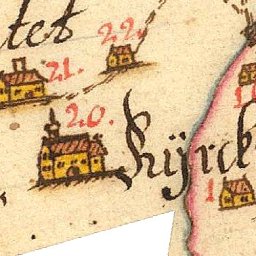 tet
22.
21.
20.
Kÿrck
1